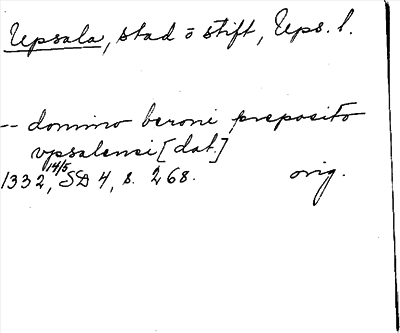 Upsala, stad o stift, Ups. l.
-- domino beroni preposito
vpsalensi [dat.]
1332, 14/5, SD 4, s. 268. orig.